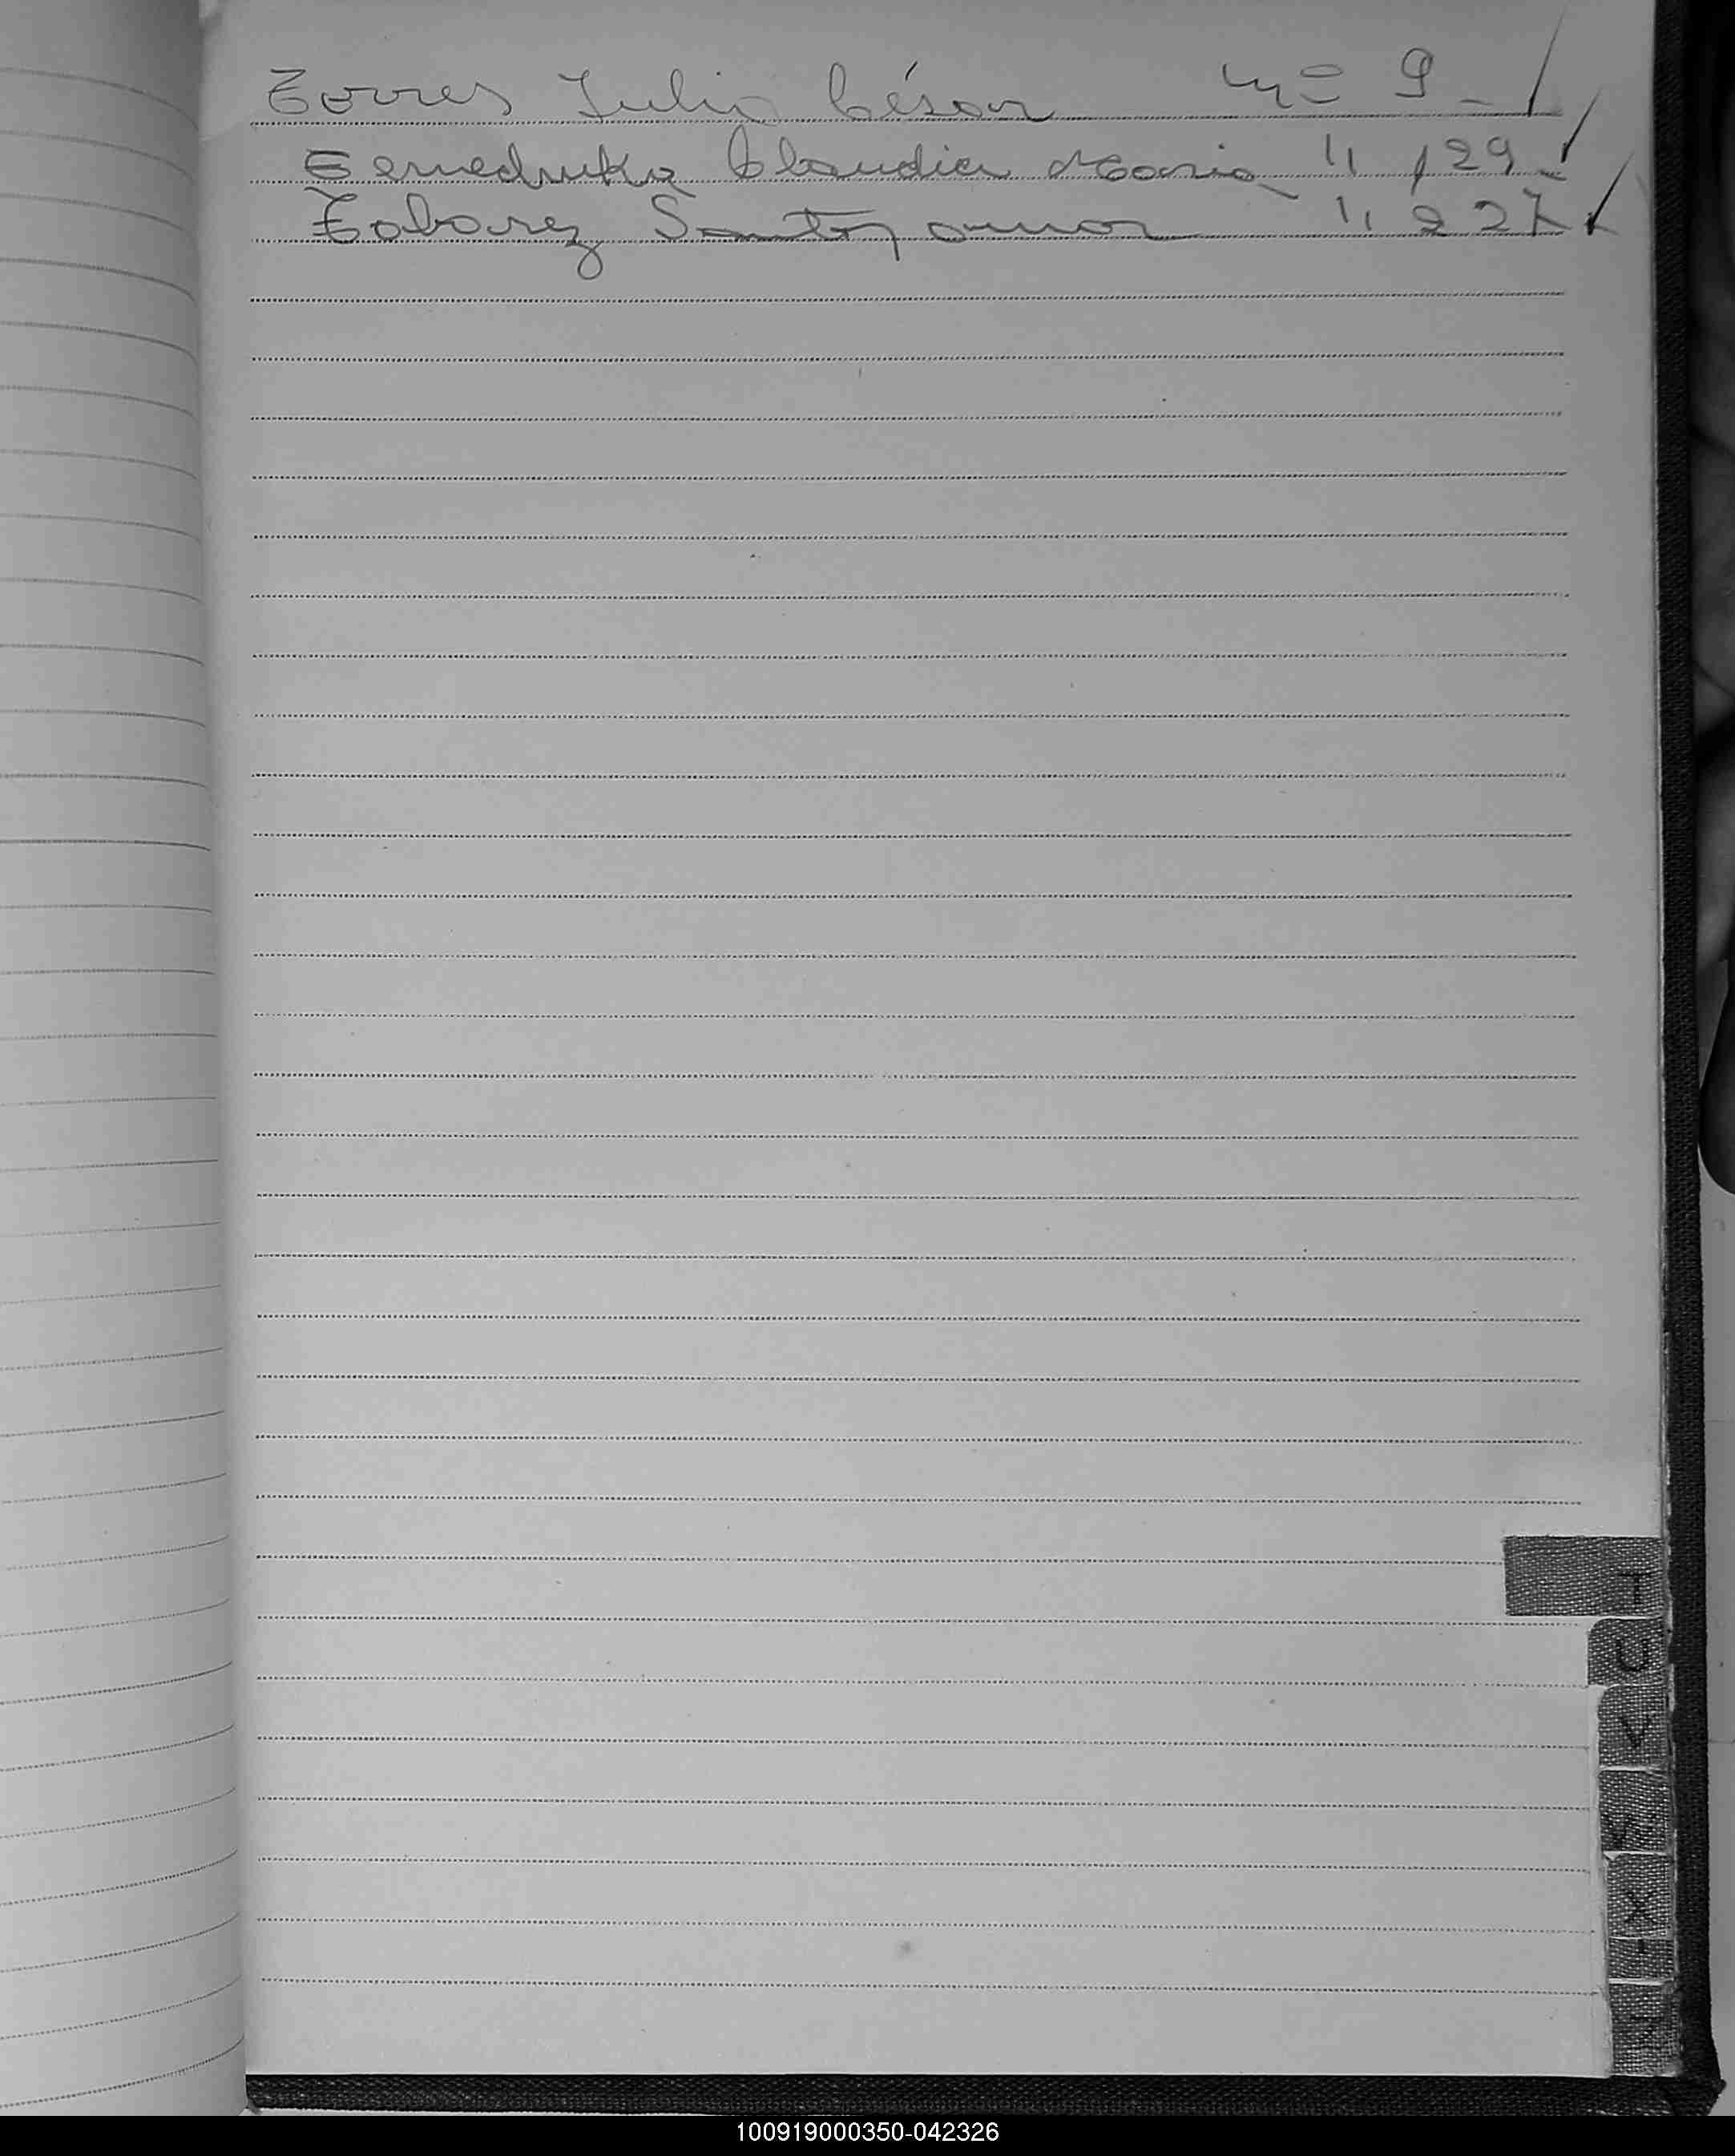 Torres Julio César nº 9 -
Claudia Maria " 129 -
Tabarez Santos Omar " 227
T
U
V
X
100919000350-042326